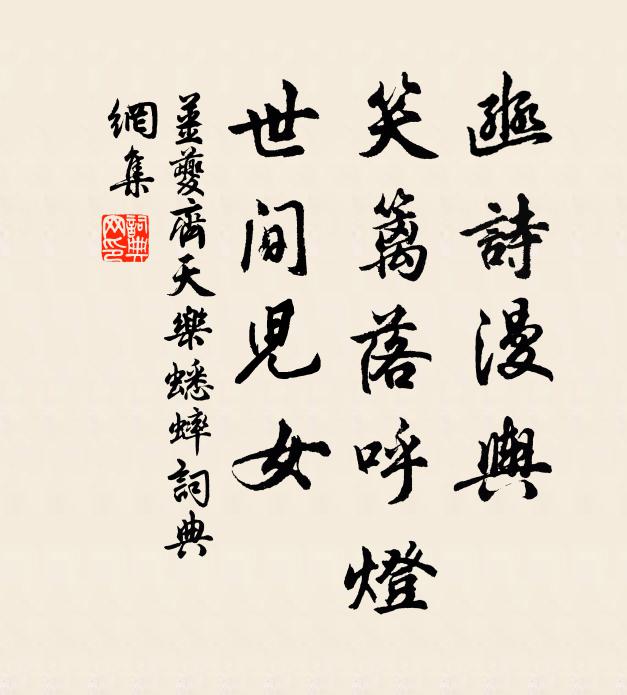 豳詩漫與
笑籬落呼燈
世間兒女
姜夔齊天樂蟋蟀詞典
網集
詞典
网印